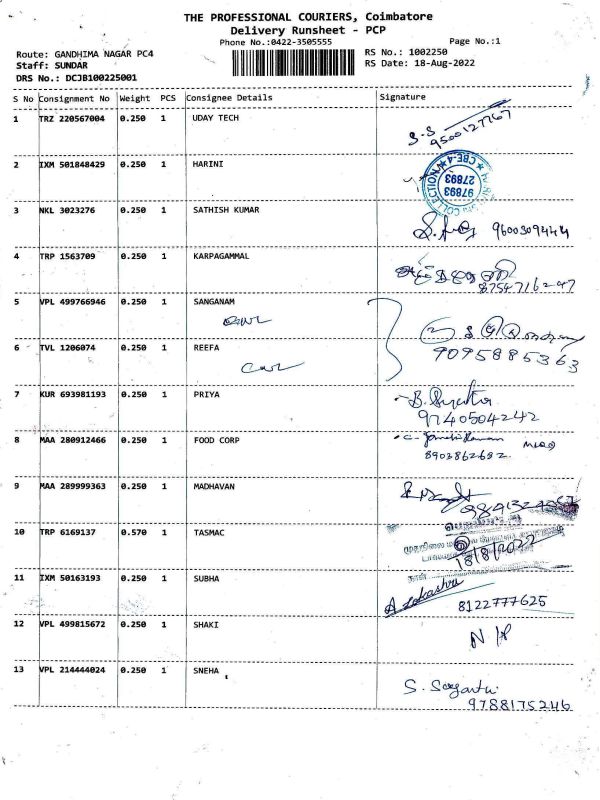 THE PROFESSIONAL COURIERS, Coimbatore
Delivery Runsheet - PCP
Phone No.:0422-3505555 Page No.:1
Route: GANDHIMA NAGAR PC4 RS No.: 1002250
Staff: SUNDAR RS Date: 18-Aug-2022
DRS No.: DCJB100225001
S No Consignment No Weight PCS Consignee Details Signature
1 TRZ 220567004 0.250 1 UDAY TECH S.S
9500127767
2 IXM 501848429 0.250 1 HARINI COLLECTION CBE-4 97893 27893
3 NKL 3023276 0.250 1 SATHISH KUMAR 9600309444
4 TRP 1563709 0.250 1 KARPAGAMMAL
8754716247
5 VPL 499766946 0.250 1 SANGANAM
6 TVL 1206074 0.250 1 REEFA 9095885363
7 KUR 693981193 0.250 1 PRIYA B.
9740504242
8 MAA 280912466 0.250 1 FOOD CORP
8903862682
9 MAA 289999363 0.250 1 MADHAVAN
10 TRP 6169137 0.570 1 TASMAC
18/8/2022
11 IXM 50163193 0.250 1 SUBHA
8122777625
12 VPL 499815672 0.250 1 SHAKI
13 VPL 214444024 0.250 1 SNEHA S.
9788175246